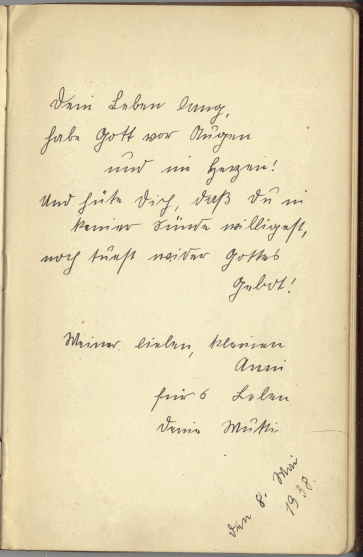 Dein Leben lang,
habe Gott vor Augen
und im Herzen!
Und hüte Dich, daß Du in
keiner Sünde willigest,
noch tuest wider Gottes
Gebot!
Meiner lieben, kleinen
Anni
für's Leben
Deine Mutti
den 8. Mai
1938.